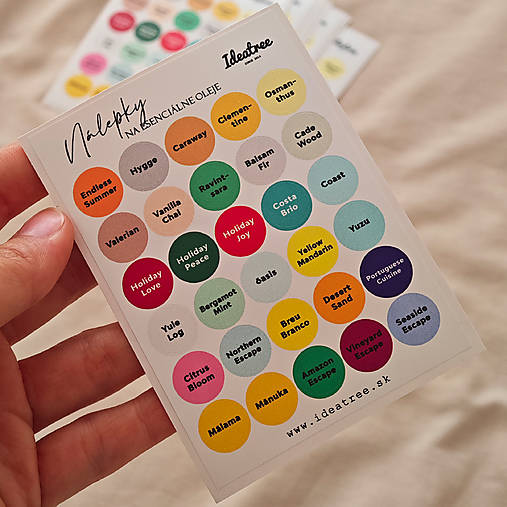 Ideatree
SINCE 2014
Nálepky
NA ESENCIÁLNE OLEJE
Endless
Summer
Hygge
Caraway
Clemen-
tine
Osman-
thus
Valerian
Vanilla
Chai
Ravint-
sara
Balsam
Fir
Cade
Wood
Holiday
Love
Holiday
Peace
Holiday
Joy
Costa
Brio
Coast
Yule
Log
Bergamot
Mint
õasis
Yellow
Mandarin
Yuzu
Citrus
Bloom
Northern
Escape
Breu
Branco
Desert
Sand
Portuguese
Cuisine
Mālama
Mānuka
Amazon
Escape
Vineyard
Escape
Seaside
Escape
www.ideatree.sk